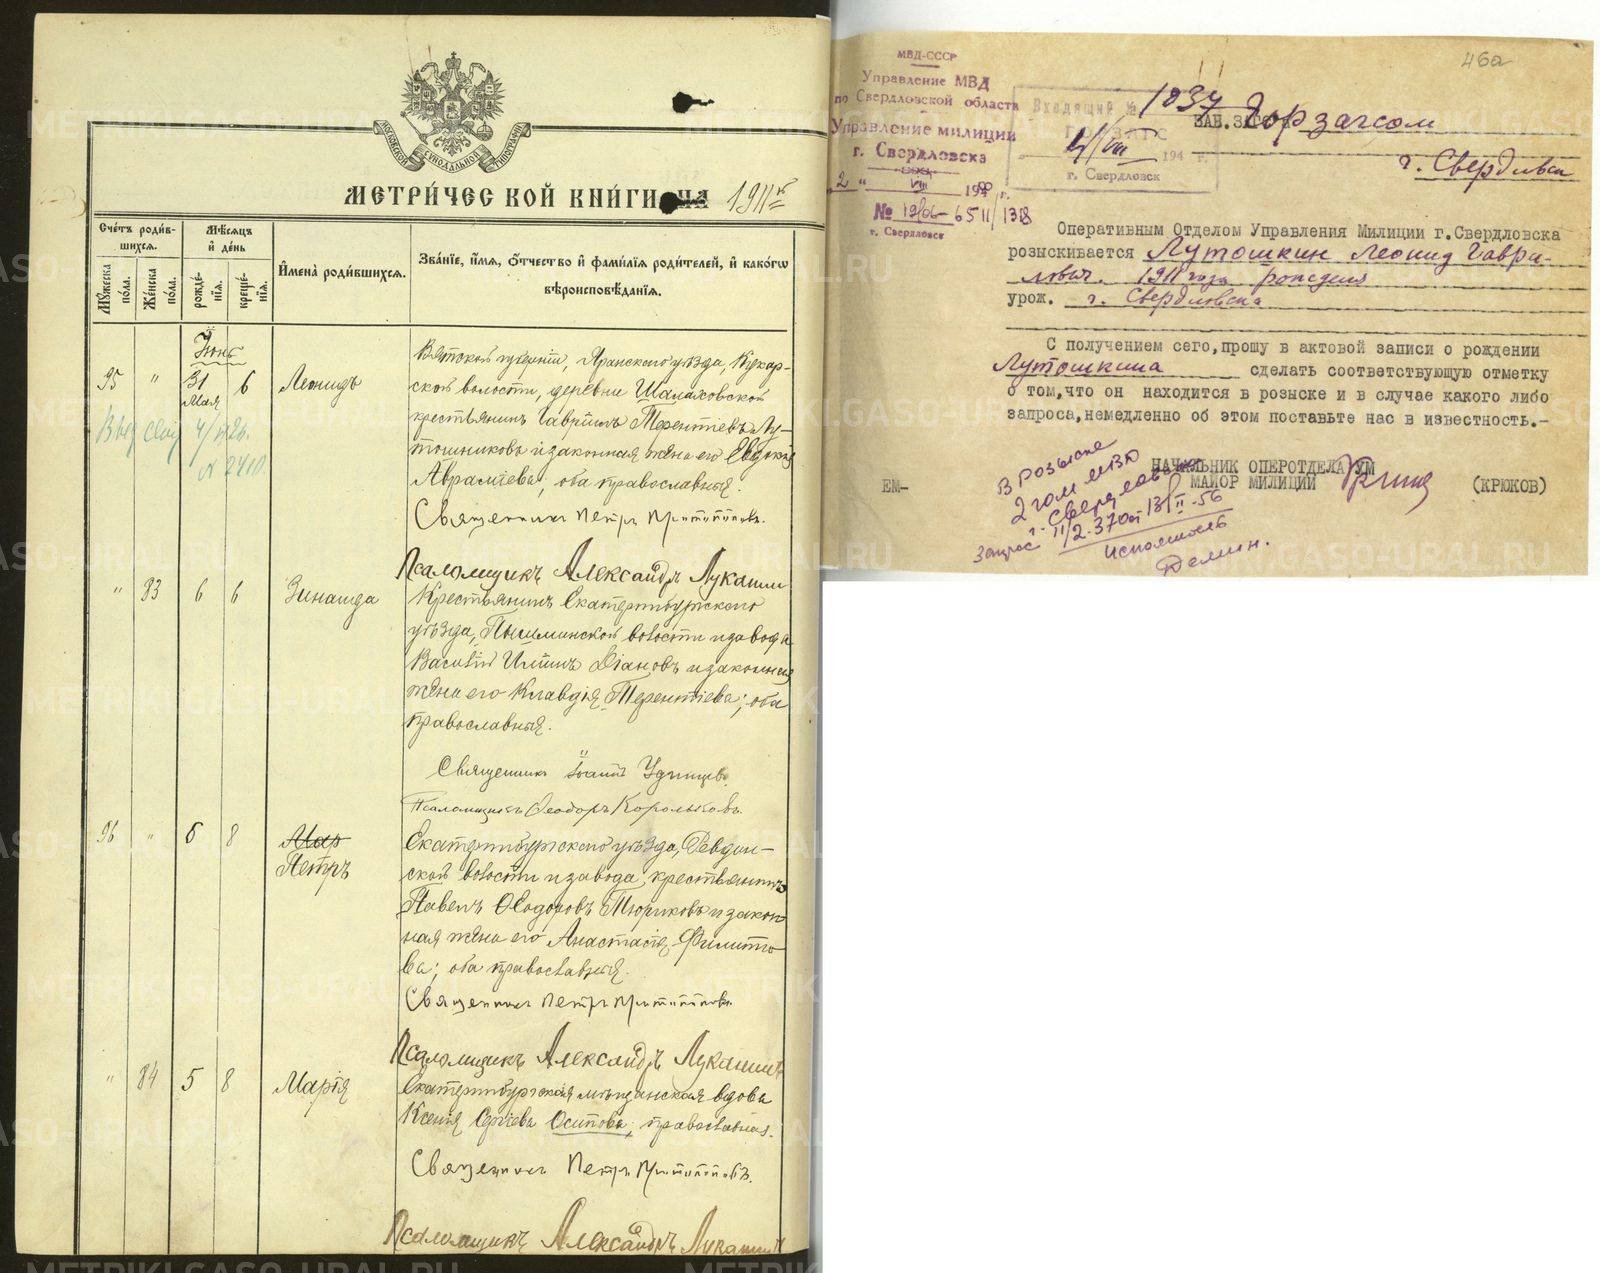 МОСКОВСКОЙ СѴНОДАЛЬНОЙ ТИПОГРАФІИ
МЕТРИ́ЧЕСКОЙ КНИ́ГИ НА 1911 г.
Сче́тъ роди́в-
шихся.
Мѣ́сяцъ
и҆ де́нь
И҆мена̀ роди́вшихся.
Зва́нїе, и҆́мя, ѻ҆́тчество и҆ фами́лїя роди́телей, и҆ како́гѡ
вѣроисповѣ́данїя.
Му́жеска по́ла.
Же́нска по́ла.
рожде́нїя.
креще́нїя.
Іюнь
95 " 31 Мая 6 Леонидъ
Вятской губерніи, Яранскаго уѣзда, Кукар-
ской волости, деревни Шалаховской
крестьянинъ Гавріилъ Терентіевъ Лу-
тошниковъ и законная жена его Евдокія
Авраміева; оба православные.
Священникъ Петръ
Псаломщикъ Александръ Лукашинъ
№ 2410.
" 83 6 6 Зинаида
Крестьянинъ Екатеринбургскаго
уѣзда, Пышминской волости и завода
Василій Ильинъ Діановъ и законная
жена его Клавдія Терентіева; оба
православные.
Священникъ Іоаннъ Удинцевъ
Псаломщикъ Ѳеодоръ Корольковъ.
96 " 6 8 Мар
Петръ
Екатеринбургскаго уѣзда, Ревдин-
ской волости и завода, крестьянинъ
Павелъ Ѳеодоровъ Тюриковъ и закон-
ная жена его Анастасія Филиппо-
ва; оба православные.
Священникъ Петръ
Псаломщикъ Александръ Лукашинъ
" 84 5 8 Марія
Екатеринбургская мѣщанская вдова
Ксенія Сергіева Осипова; православная.
Священникъ Петръ
Псаломщикъ Александръ Лукашинъ
46а
МВД-СССР
Управление МВД
по Свердловской области
Управление милиции
г. Свердловска
2 " VIII 194
№ 19/06-6511/1318
г. Свердловск
Входящий № 1037
ГОРЗАГС
4/VIII 194 г.
г. Свердловск
ЗАВ.ЗАГС Горзагсом
г. Свердловск
Оперативным Отделом Управления Милиции г.Свердловска
розыскивается Лутошкин Леонид Гаври-
лович. 1911 года рождения
урож. г. Свердловска
С получением сего, прошу в актовой записи о рождении
Лутошкина сделать соответствующую отметку
о том, что он находится в розыске и в случае какого либо
запроса, немедленно об этом поставьте нас в известность.-
НАЧАЛЬНИК ОПЕРОТДЕЛА УМ
ЕМ- МАЙОР МИЛИЦИИ (КРЮКОВ)
В розыске
2 гом МВД
г. Свердловск
Запрос 11/2-370 от 13/II-56
исполнить
Демин.
METRIKI.GASO-URAL.RU